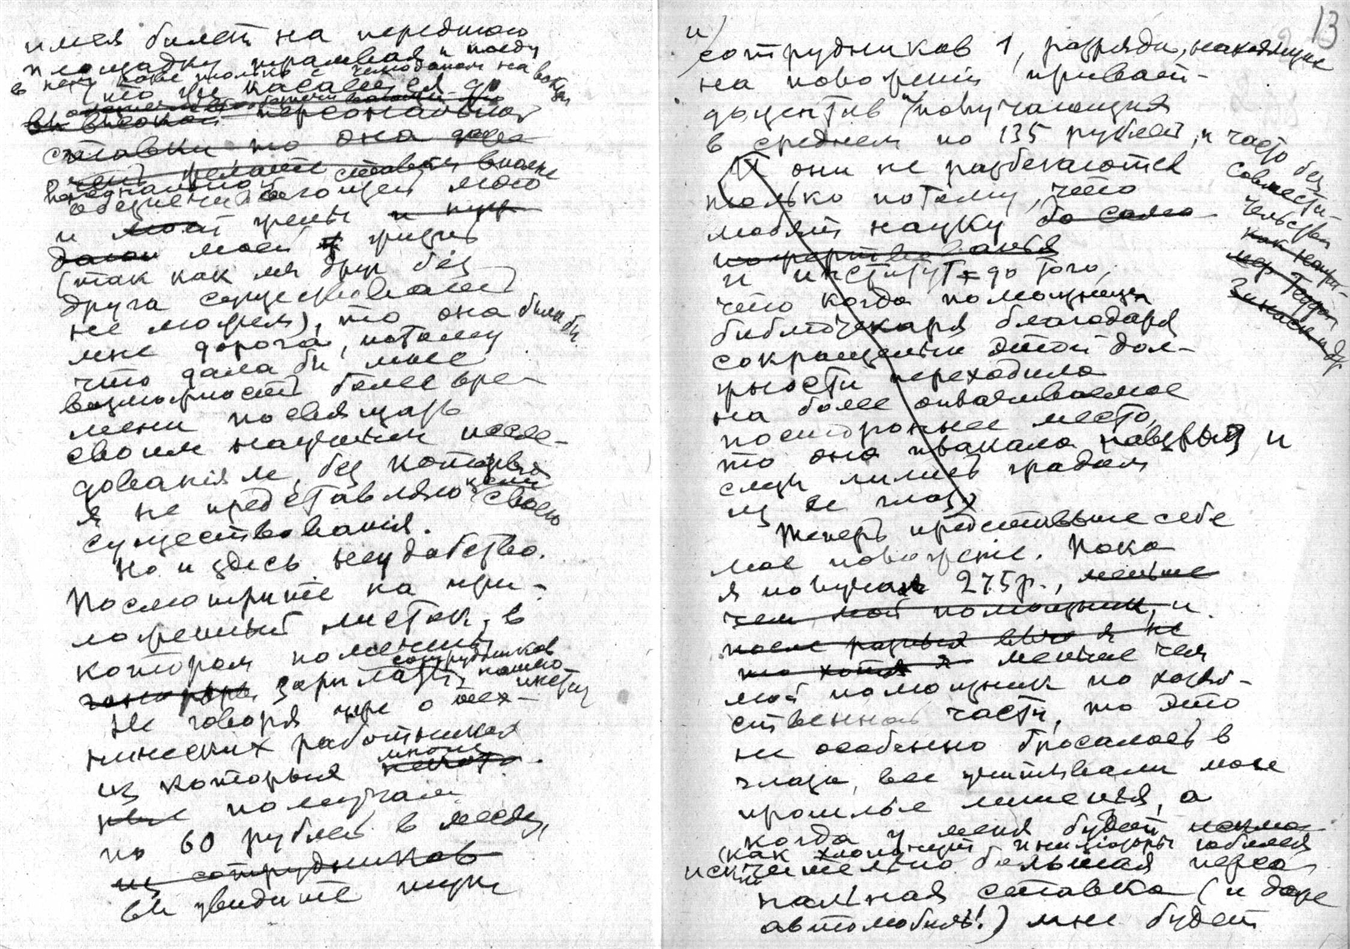 имея билет на переднюю
площадку трамвая и поеду
в нем даже только с чемоданом на вокзал
что же касается до
высокой персональной
ставки то она даже
обеднению моего
и моей жены и
моей жизнь
(так как мы друг без
друга существовать
не можем), то она была бы
мне дорога, потому
что дала бы мне
возможность более вре-
мени посвящать
своим научным иссле-
дованіям, без которых
я не представляю цели своего
существованія.
Но и здесь неудобство.
Посмотрите на при-
ложенный листок, в
котором помечены
зарплаты сотрудников нашего инст.
Не говоря уже о тех-
нических работниках
из которых многие
получают
по 60 рублей в месяц,
из сотрудников
вы увидите
13
и
сотрудников 1, разряда, находящихся
на положеніи приват-
доцентов, получающих
в среднем по 135 рублей, и часто без
совмести-
тельства
они не разбегаются
только потому, что
любят науку
и институт до того,
что когда помощница
библіотекаря благодаря
сокращенью этой дол-
жности переходила
на более оплачиваемое
постороннее место,
то она плакала навзрыд, и
слезы лились градом
из ее глаз
Теперь представьте себе
мое положеніе. Пока
я получал 275 р., меньше
чем мой помощник, и
то хотя я меньше чем
мой помощник по хозяй-
ственной части, то это
не особенно бросалось в
глаза, все учитывали мои
прошлые лишенья, а
когда у меня будет
(как хлопочут инициаторы юбилея
исключительно большая персо-
нальная ставка (и даже
автомобиль!) мне будет